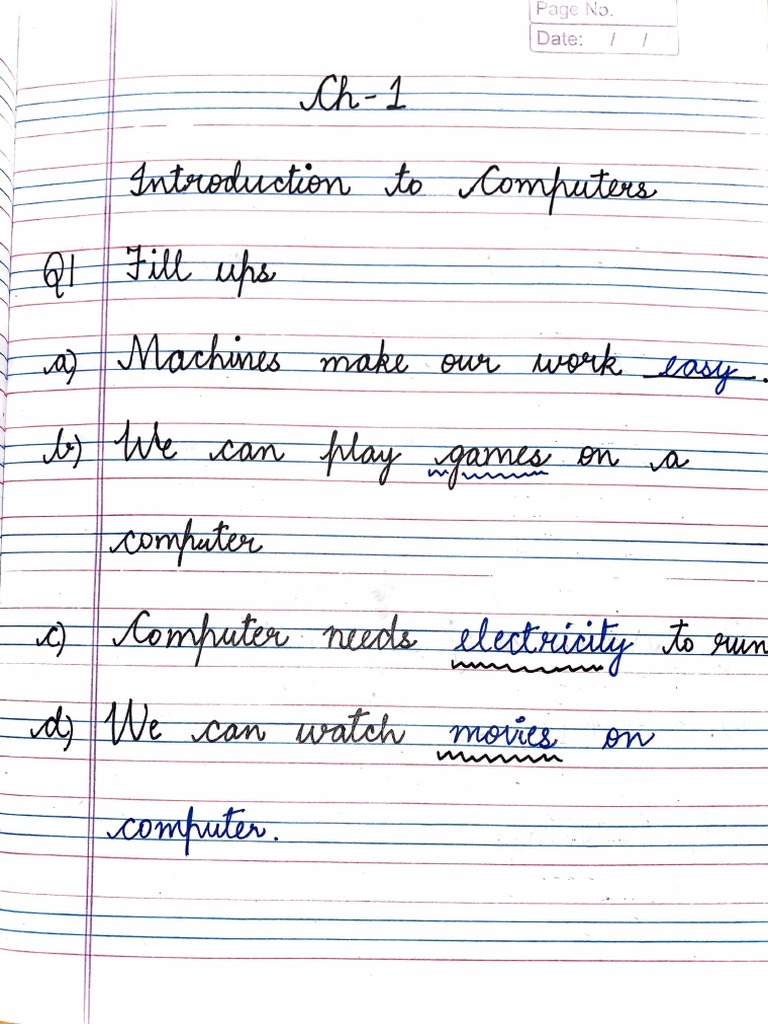 Page No.
Date: / /
Ch-1
Introduction to Computers
Q1 Fill ups
a) Machines make our work easy.
b) We can play games on a
computer
c) Computer needs electricity to run
d) We can watch movies on
computer.